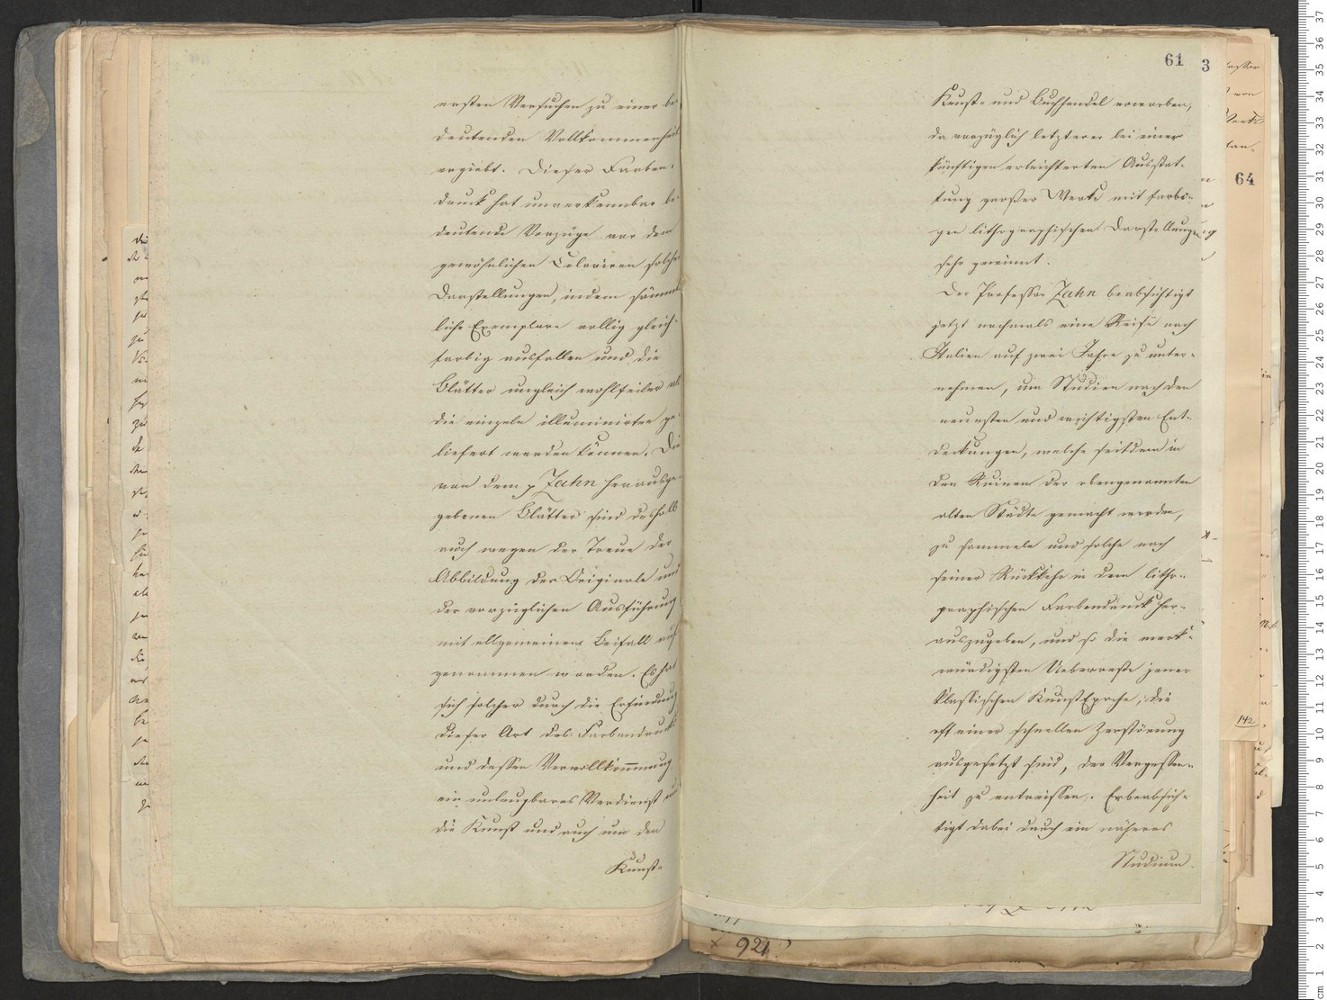 ersten Versuchen zu einer be-
deutenden Vollkommenheit
ergiebt. Dieser Farben-
druck hat unverkennbar be-
deutende Vorzüge vor dem
gewöhnlichen Coloriren solcher
Darstellungen, indem sämmt-
liche Exemplare völlig gleich-
farbig ausfallen und die
Blätter ungleich wohlfeiler als
die einzeln illuminirten ge-
liefert werden können. Die
von dem p Zahn herausge-
gebenen Blätter sind deshalb
auch wegen der Treue der
Abbildung der Originale und
der vorzüglichen Ausführung
mit allgemeinem Beifall auf
genommen worden. Es hat
sich solcher durch die Erfindung
dieser Art des Farbendrucks
und dessen Vervollkommnung
ein unleugbares Verdienst um
die Kunst und auch um den
Kunst-
61 3
Kunst- und Buchhandel erworben,
da vorzüglich letzterer bei einer
künftigen erleichterten Ausstat-
tung großer Werke mit farbi-
gen lithographischen Darstellungen
sehr gewinnt.
Der Professor Zahn beabsichtigt
jetzt nochmals eine Reise nach
Italien auf zwei Jahre zu unter-
nehmen, um Studien nach den
neuesten und wichtigsten Ent-
deckungen, welche seitdem in
den Ruinen der obengenannten
alten Städte gemacht worden,
zu sammeln und solche nach
seiner Rückkehr in dem litho-
graphischen Farbendruck her-
auszugeben, und so die merk-
würdigsten Ueberreste jener
klassischen KunstEpoche, die
oft einer schnellen Zerstörung
ausgesetzt sind, der Vergessen-
heit zu entreissen. Er beabsich-
tigt dabei durch ein näheres
Studium
64
142
921